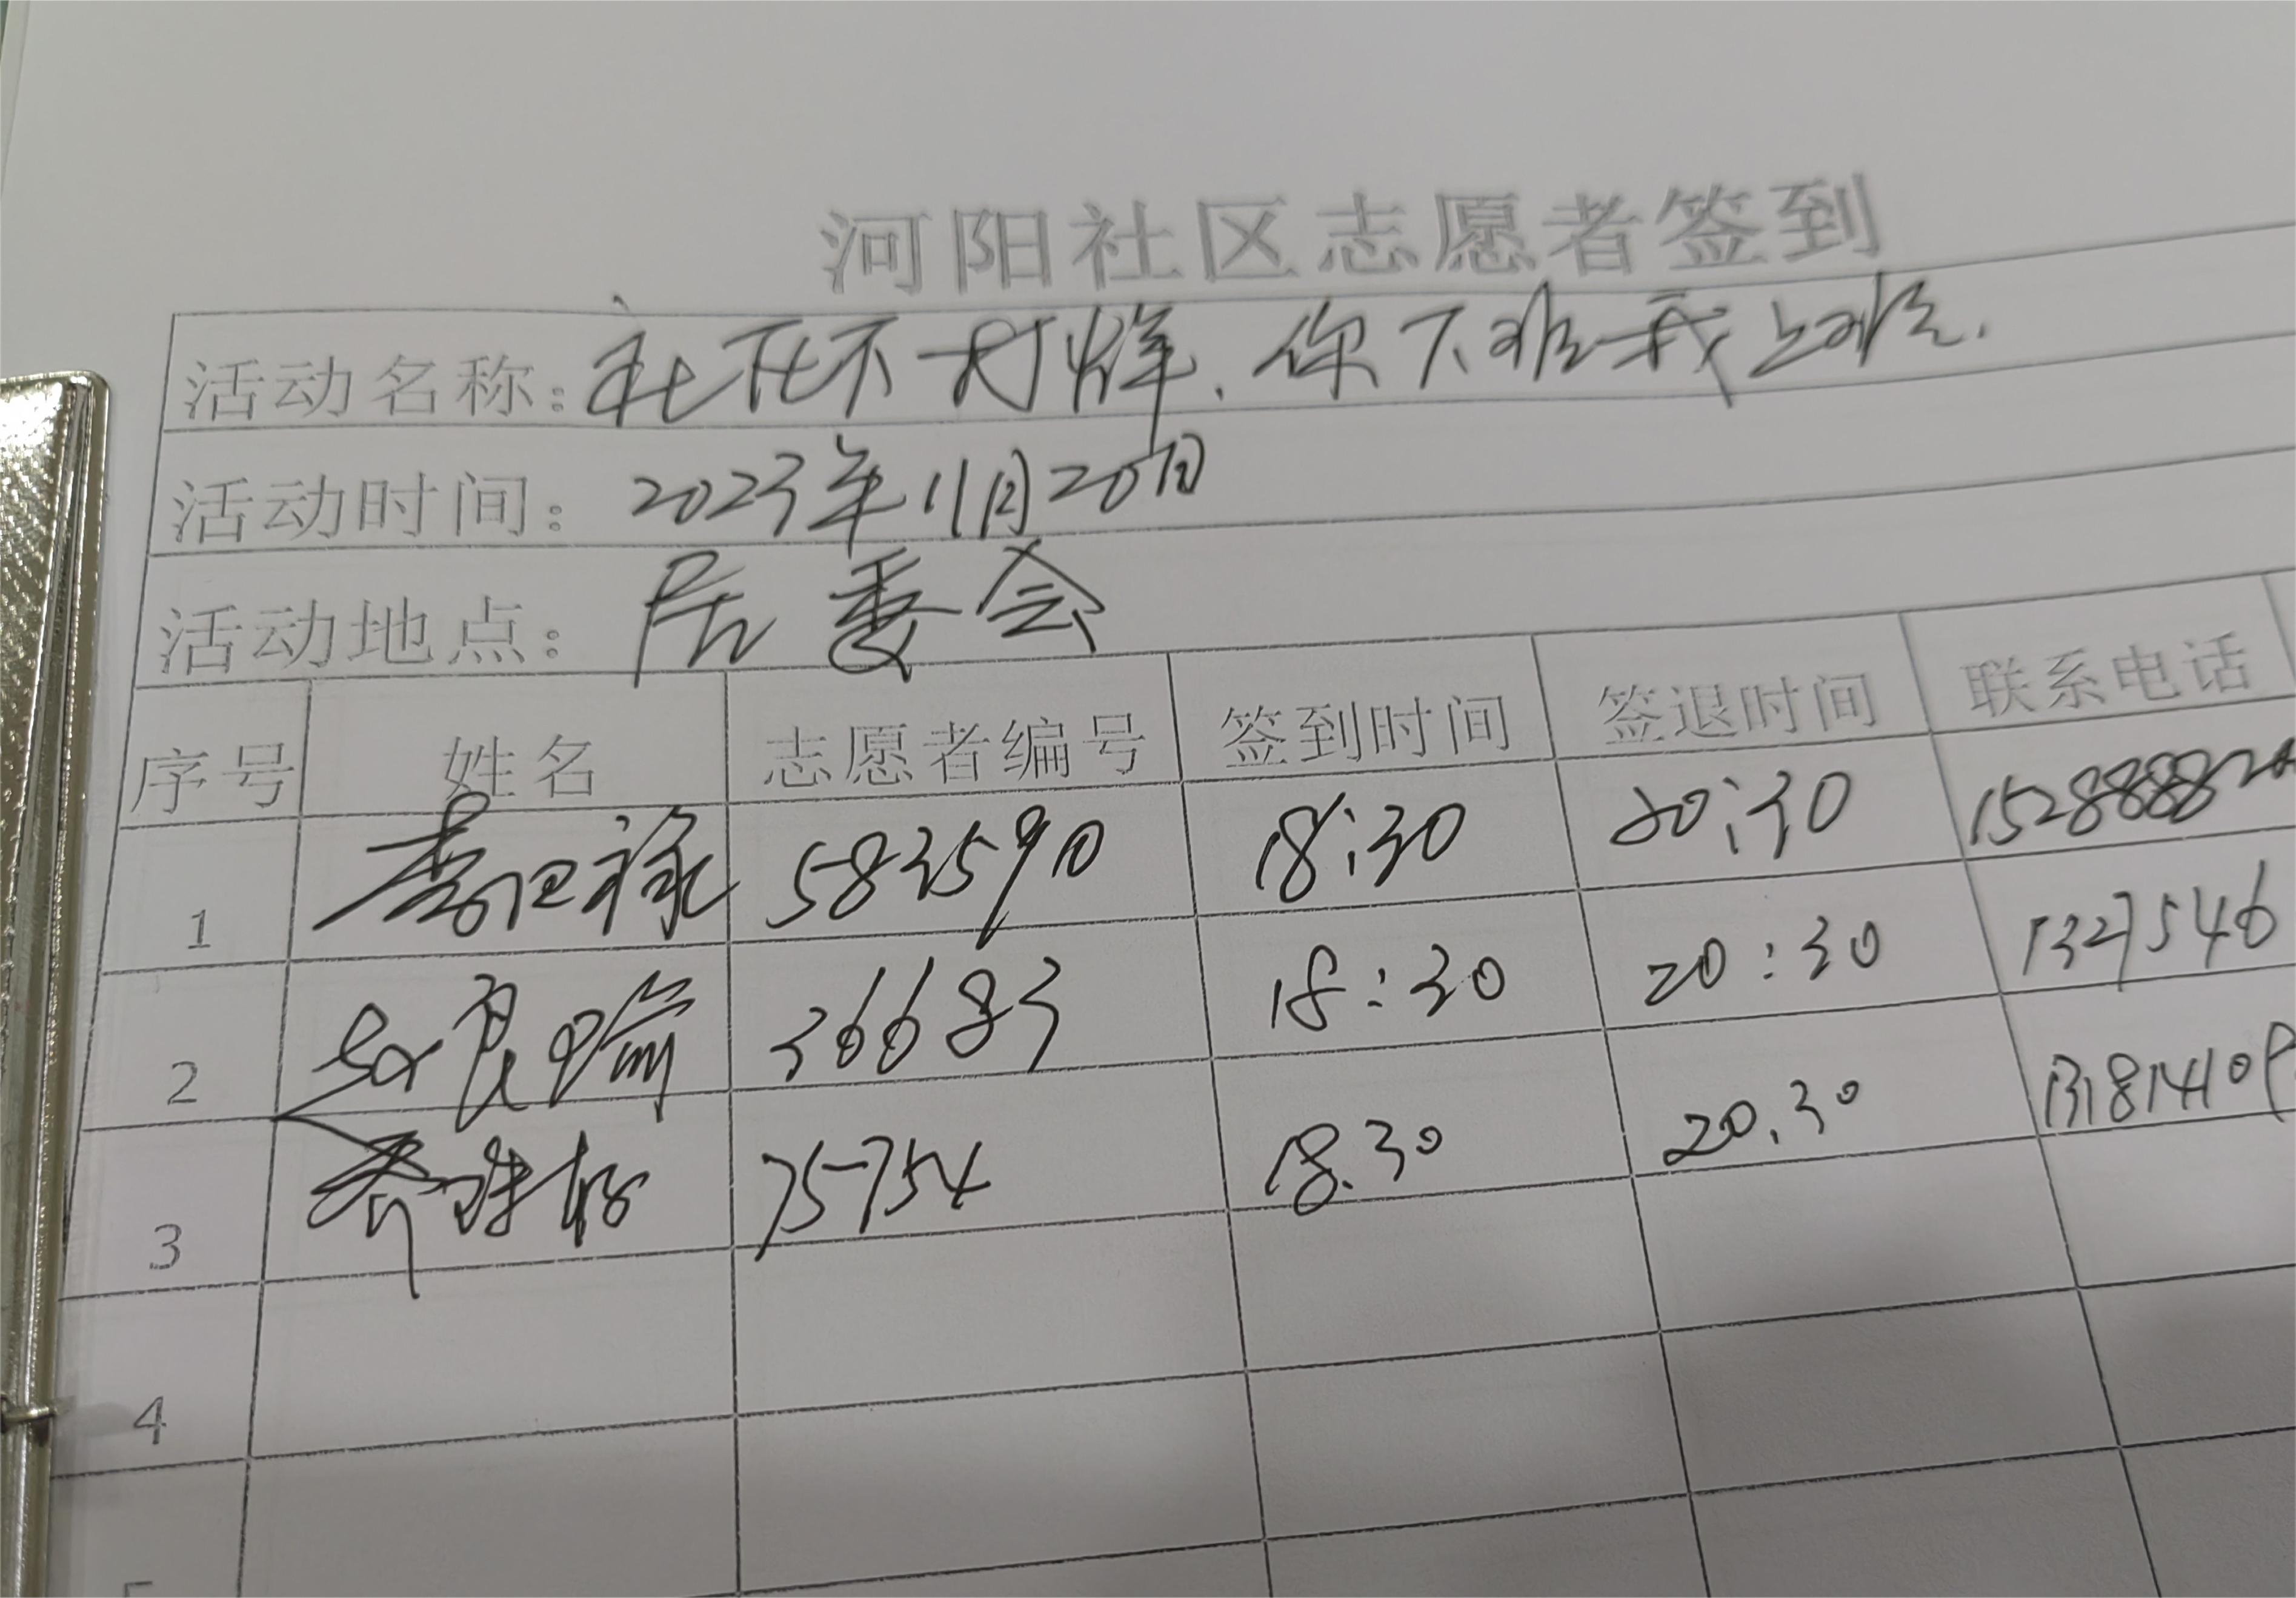 河阳社区志愿者签到
活动名称：社区不打烊，你下班我上班.
活动时间：2023年11月20日
活动地点：居委会
序号 姓名 志愿者编号 签到时间 签退时间 联系电话
1 583590 18:30 20:30 15288882
2 36683 18:30 20:30 1327546
3 75754 18.30 20.30 1318141
4